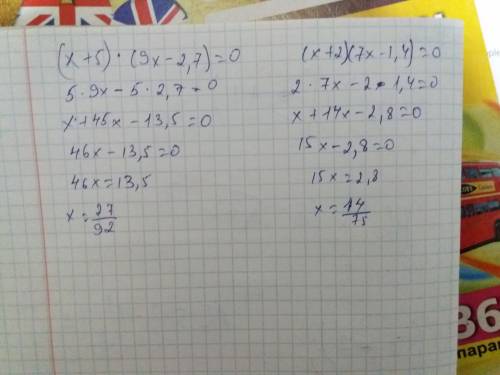 (x+5)·(9x-2,7)=0
5·9x-5·2,7=0
x+45x-13,5=0
46x-13,5=0
46x=13,5
x=27/92
(x+2)(7x-1,4)=0
2·7x-2·1,4=0
x+14x-2,8=0
15x-2,8=0
15x=2,8
x=14/75
36
парам